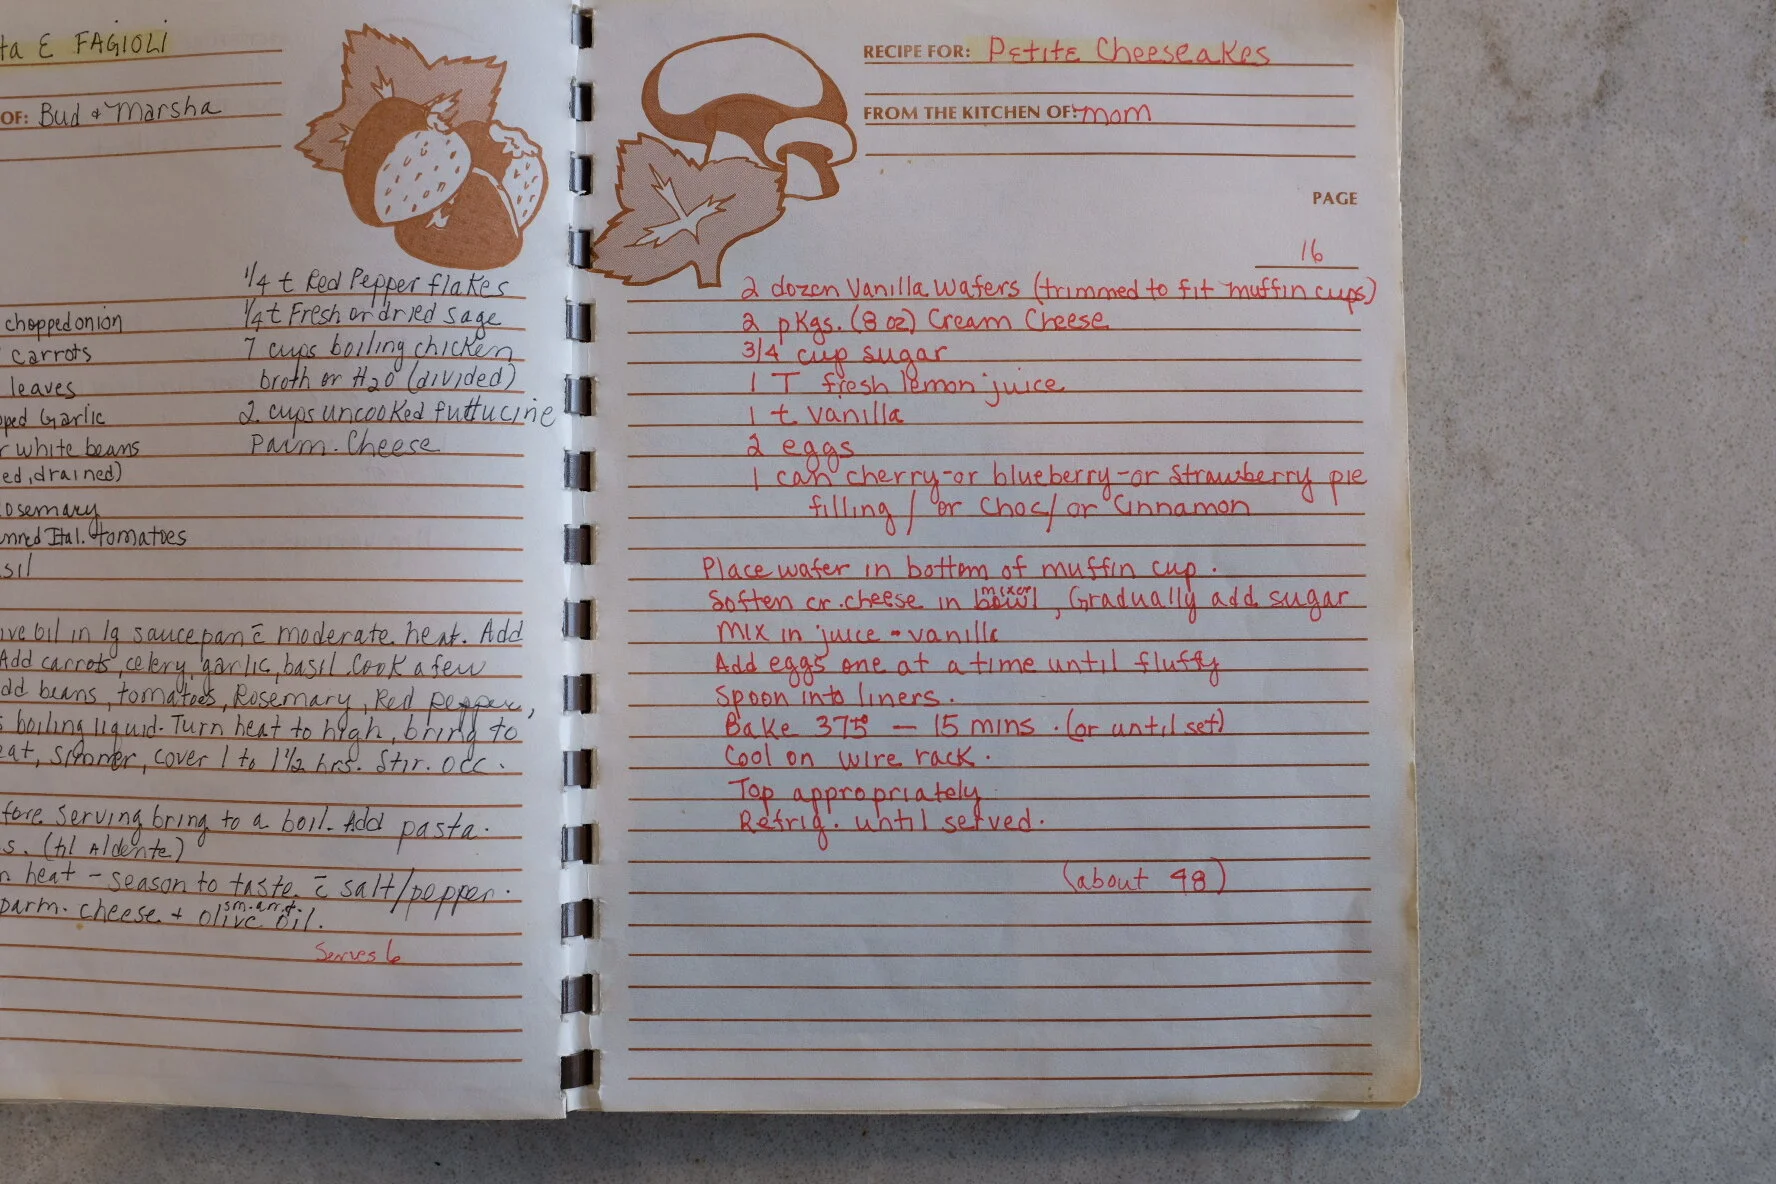 ta E FAGIOLI
OF: Bud + Marsha
1/4 t Red Pepper flakes
chopped onion 1/4 t Fresh or dried sage
carrots 7 cups boiling chicken
leaves broth or H2O (divided)
pped Garlic 2 cups uncooked futtucine
r white beans Parm. Cheese
ed, drained)
osemary
nned Ital. tomatoes
sil
ive oil in lg saucepan c̄ moderate heat. Add
Add carrots, celery, garlic, basil. Cook a few
dd beans, tomatoes, Rosemary, Red pepper,
s boiling liquid. Turn heat to high, bring to
eat, simmer, cover 1 to 1 1/2 hrs. Stir. occ.
fore serving bring to a boil. Add pasta.
s. (til Aldente)
n heat - season to taste c̄ salt/pepper.
parm. cheese + sm. amt. olive oil.
Serves 6
RECIPE FOR: Petite Cheeseakes
FROM THE KITCHEN OF: mom
PAGE
16
2 dozen Vanilla Wafers (trimmed to fit muffin cups)
2 pkgs. (8 oz) Cream Cheese
3/4 cup sugar
1 T fresh lemon juice
1 t vanilla
2 eggs
1 can cherry-or blueberry-or Strawberry pie
filling / or Choc/ or Cinnamon
Place wafer in bottom of muffin cup.
Soften cr. cheese in mixer bowl, Gradually add sugar
Mix in juice - vanilla
Add eggs one at a time until fluffy
Spoon into liners.
Bake 375° — 15 mins. (or until set)
Cool on wire rack.
Top appropriately
Refrig. until served.
(about 48)